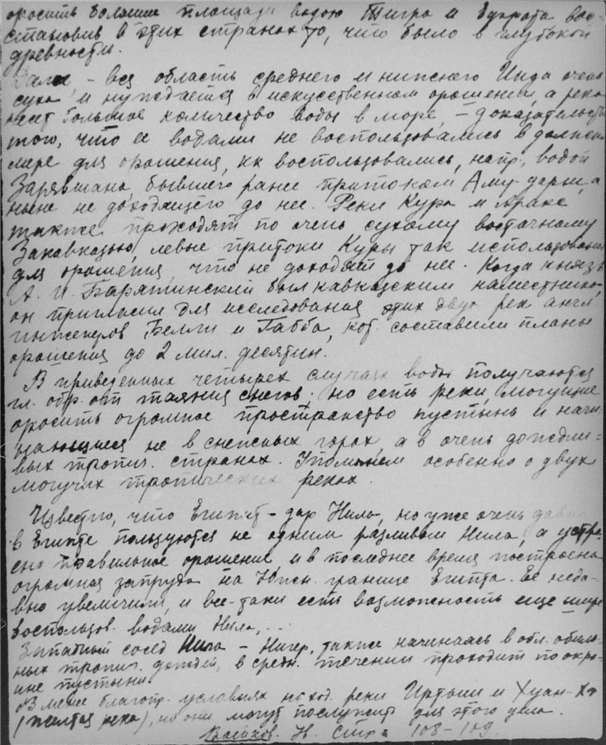 оросить большие площади водою Тигра и Евфрата вос-
становив в этих странах то, что было в глубокой
древности.
Далее - вся область среднего и нижнего Инда очень
суха и нуждается в искусственном орошении, а река
несет большое количество воды в море, - доказательство
того, что ее водами не воспользовались в должной
мере для орошения, кк воспользовались, напр., водой
Зарявшана, бывшего ранее притоком Аму-дарьи, а
ныне не доходящего до нее. Реки Кура и Аракс
также проходят по очень сухому восточному
Закавказью, левые притоки Куры так использованы
для орошения, что не доходят до нее. Когда князь
А. И. Барятинский был кавказским наместником
он пригласил для исследования этих двух рек англ.
инженеров Белли и Габба, кот. составили планы
орошения до 2 мил. десятин.
В приведенных четырех случаях воды получаются
гл. обр. от таяния снегов; но есть реки, могущие
оросить огромное пространство пустынь и начи-
нающиеся не в снежных горах а в очень дождли-
вых тропич. странах. Упомянем особенно о двух
могучих тропических реках.
Известно, что Египет - дар Нила, но уже очень давно
в Египте пользуются не одним разливом Нила, а устро-
ено правильное орошение, и в последнее время построена
огромная запруда на Южн. границе Египта. Ее неда-
вно увеличили, и все-таки есть возможность еще шире
воспользов. водами Нила,...
Западный сосед Нила - Нигер, также начинаясь в обл. обиль-
ных тропич. дождей, в средн. течении проходит по окра-
ине пустыни.
В менее благопр. условиях наход. реки Иртыш и Хуан-Хэ
(Желтая река), но они могут послужить для этого дела.
Воейков. Н. Стра 108-109.